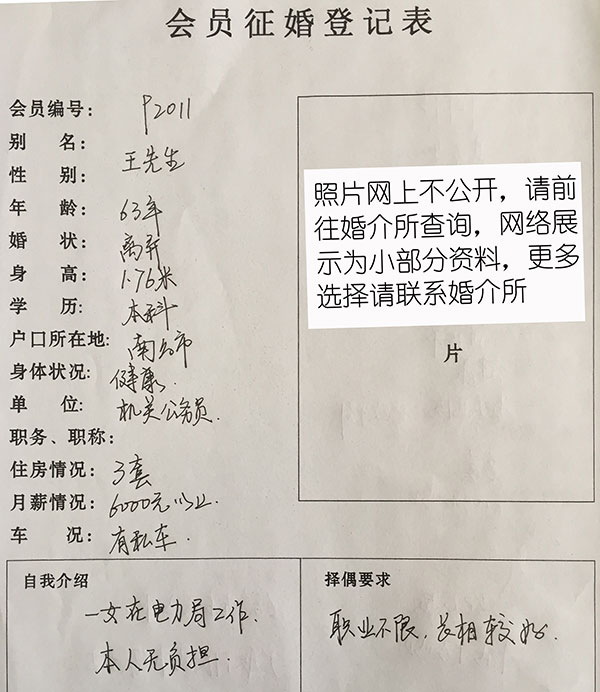 会员征婚登记表
会员编号: P2011
别 名: 王先生
性 别:
年 龄: 63年
婚 状: 离异
身 高: 1.76米
学 历: 本科
户口所在地: 南昌市
身体状况: 健康.
单 位: 机关公务员.
职务、职称:
住房情况: 3套
月薪情况: 6000元以上
车 况: 有私车.
照片网上不公开，请前
往婚介所查询，网络展
示为小部分资料，更多
选择请联系婚介所
片
自我介绍
一女在电力局工作.
本人无负担.
择偶要求
职业不限，长相较好.